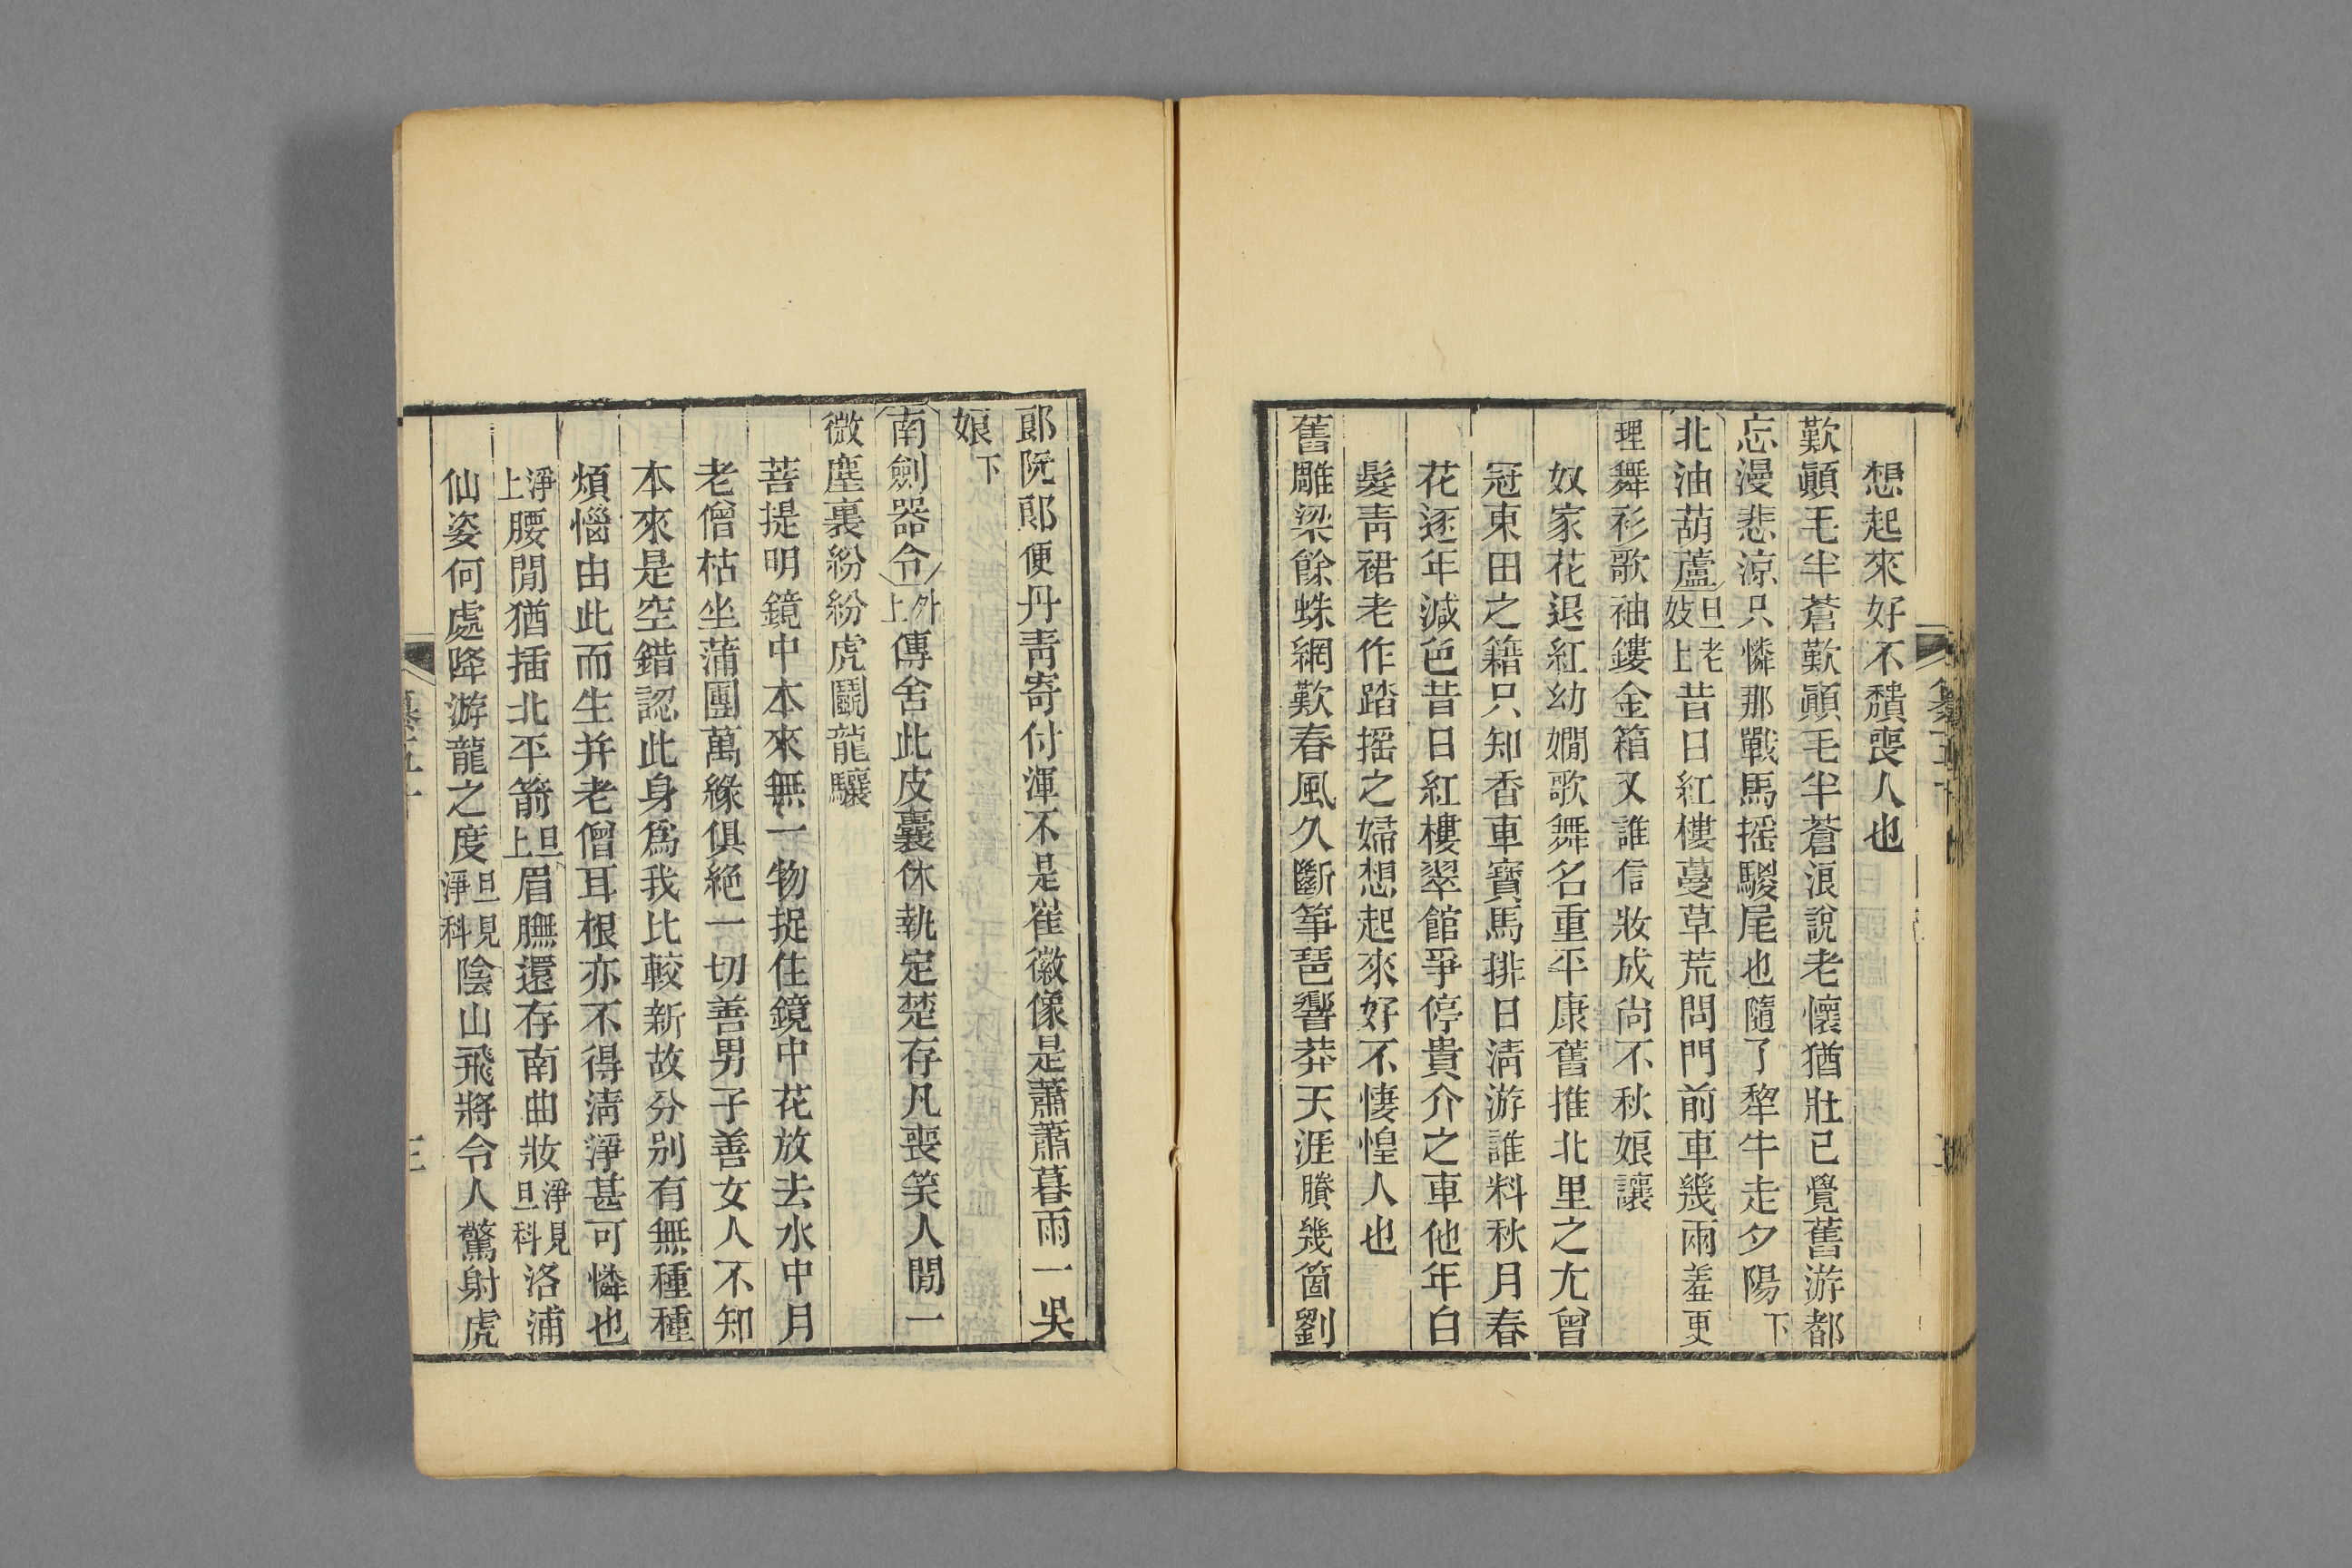 想起來好不穨喪人也
歎顚毛半蒼歎顚毛半蒼浪說老懷猶壯已覺舊游都
忘漫悲涼只憐那戰馬揺騣尾也隨了犂牛走夕陽下
北油葫蘆旦老妓上昔日紅樓蔓草荒問門前車幾兩羞更
理舞衫歌袖鏤金箱又誰信妝成尙不秋娘讓
奴家花退紅幼嫺歌舞名重平康舊推北里之尤曾
冠東田之籍只知香車寶馬排日淸游誰料秋月春
花逐年減色昔日紅樓翠館爭停貴介之車他年白
髮靑裙老作踏揺之婦想起來好不悽惶人也
舊雕梁餘蛛網歎春風久斷箏琶響莽天涯賸幾箇劉
郞阮郞便丹靑寄付渾不是崔徽像是蕭蕭暮雨一吳
娘下
南劍器令外上傳舍此皮囊休執定楚存凡喪笑人閒一
微塵裏紛紛虎鬬龍驤
菩提明鏡中本來無一物捉住鏡中花放去水中月
老僧枯坐蒲團萬緣俱絶一切善男子善女人不知
本來是空錯認此身爲我比較新故分别有無種種
煩惱由此而生并老僧耳根亦不得淸淨甚可憐也
淨上腰閒猶插北平箭旦上眉膴還存南曲妝淨見旦科洛浦
仙姿何處降游龍之度旦見淨科陰山飛將令人驚射虎
三